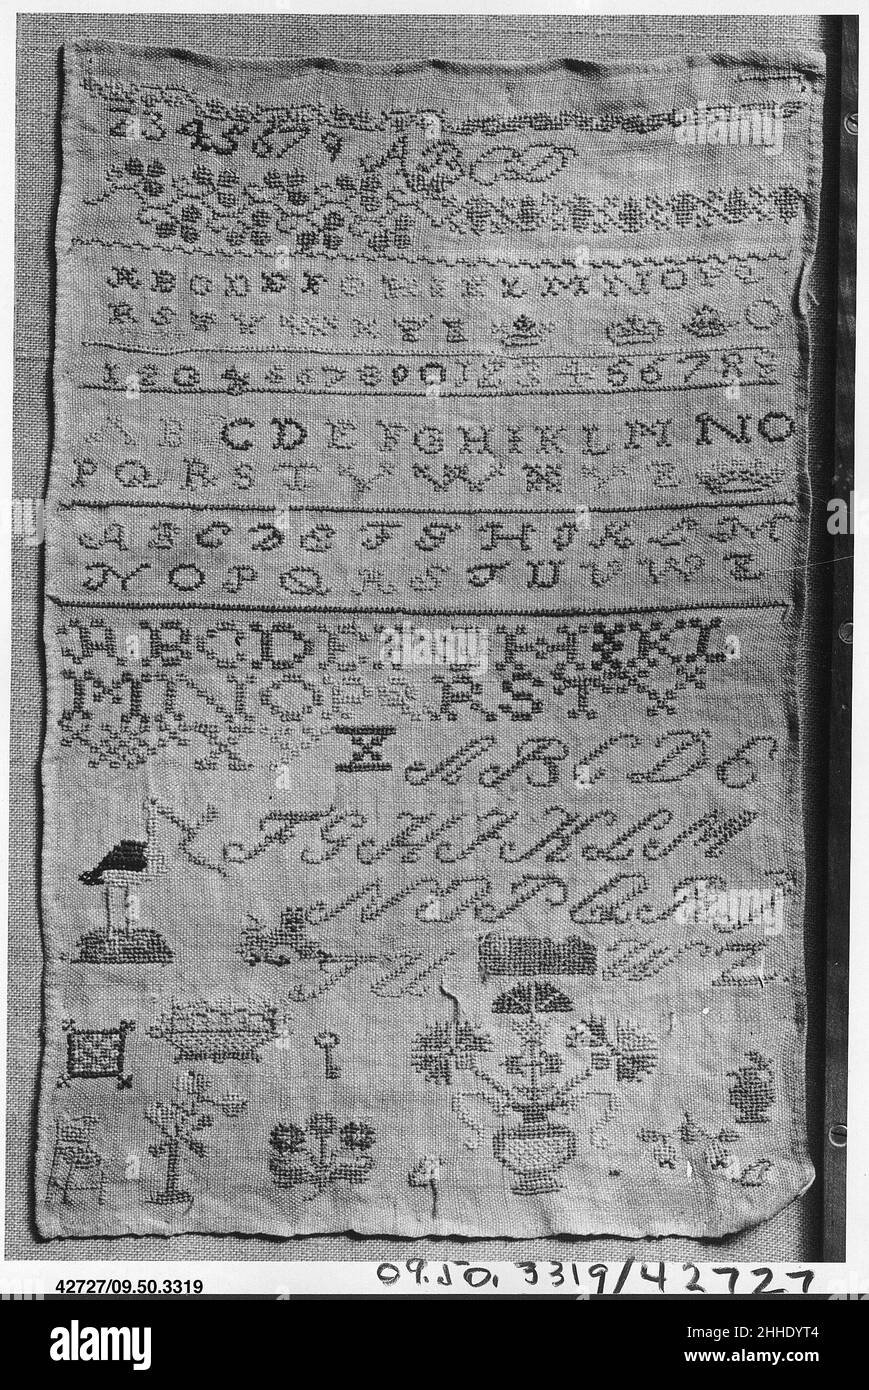 2 3 4 5 6 7 9 A B C D
A B C D E F G H I K L M N O P Q
R S T V W X Y Z O
1 2 3 4 5 6 7 8 9 0 1 2 3 4 5 6 7 8 9
A B C D E F G H I K L M N O
P Q R S T V W X Y Z
A B C D E F G H I K L M
N O P Q R S T U V W Z
A B C D E F G H I K L
M N O P Q R S T V
W X Y Z A B C D E
F G H I K L M
N O P Q R S T
U V W Z
42727/09.50.3319
09.50.3319/42727
alamy
Image ID: 2HHDYT4
www.alamy.com